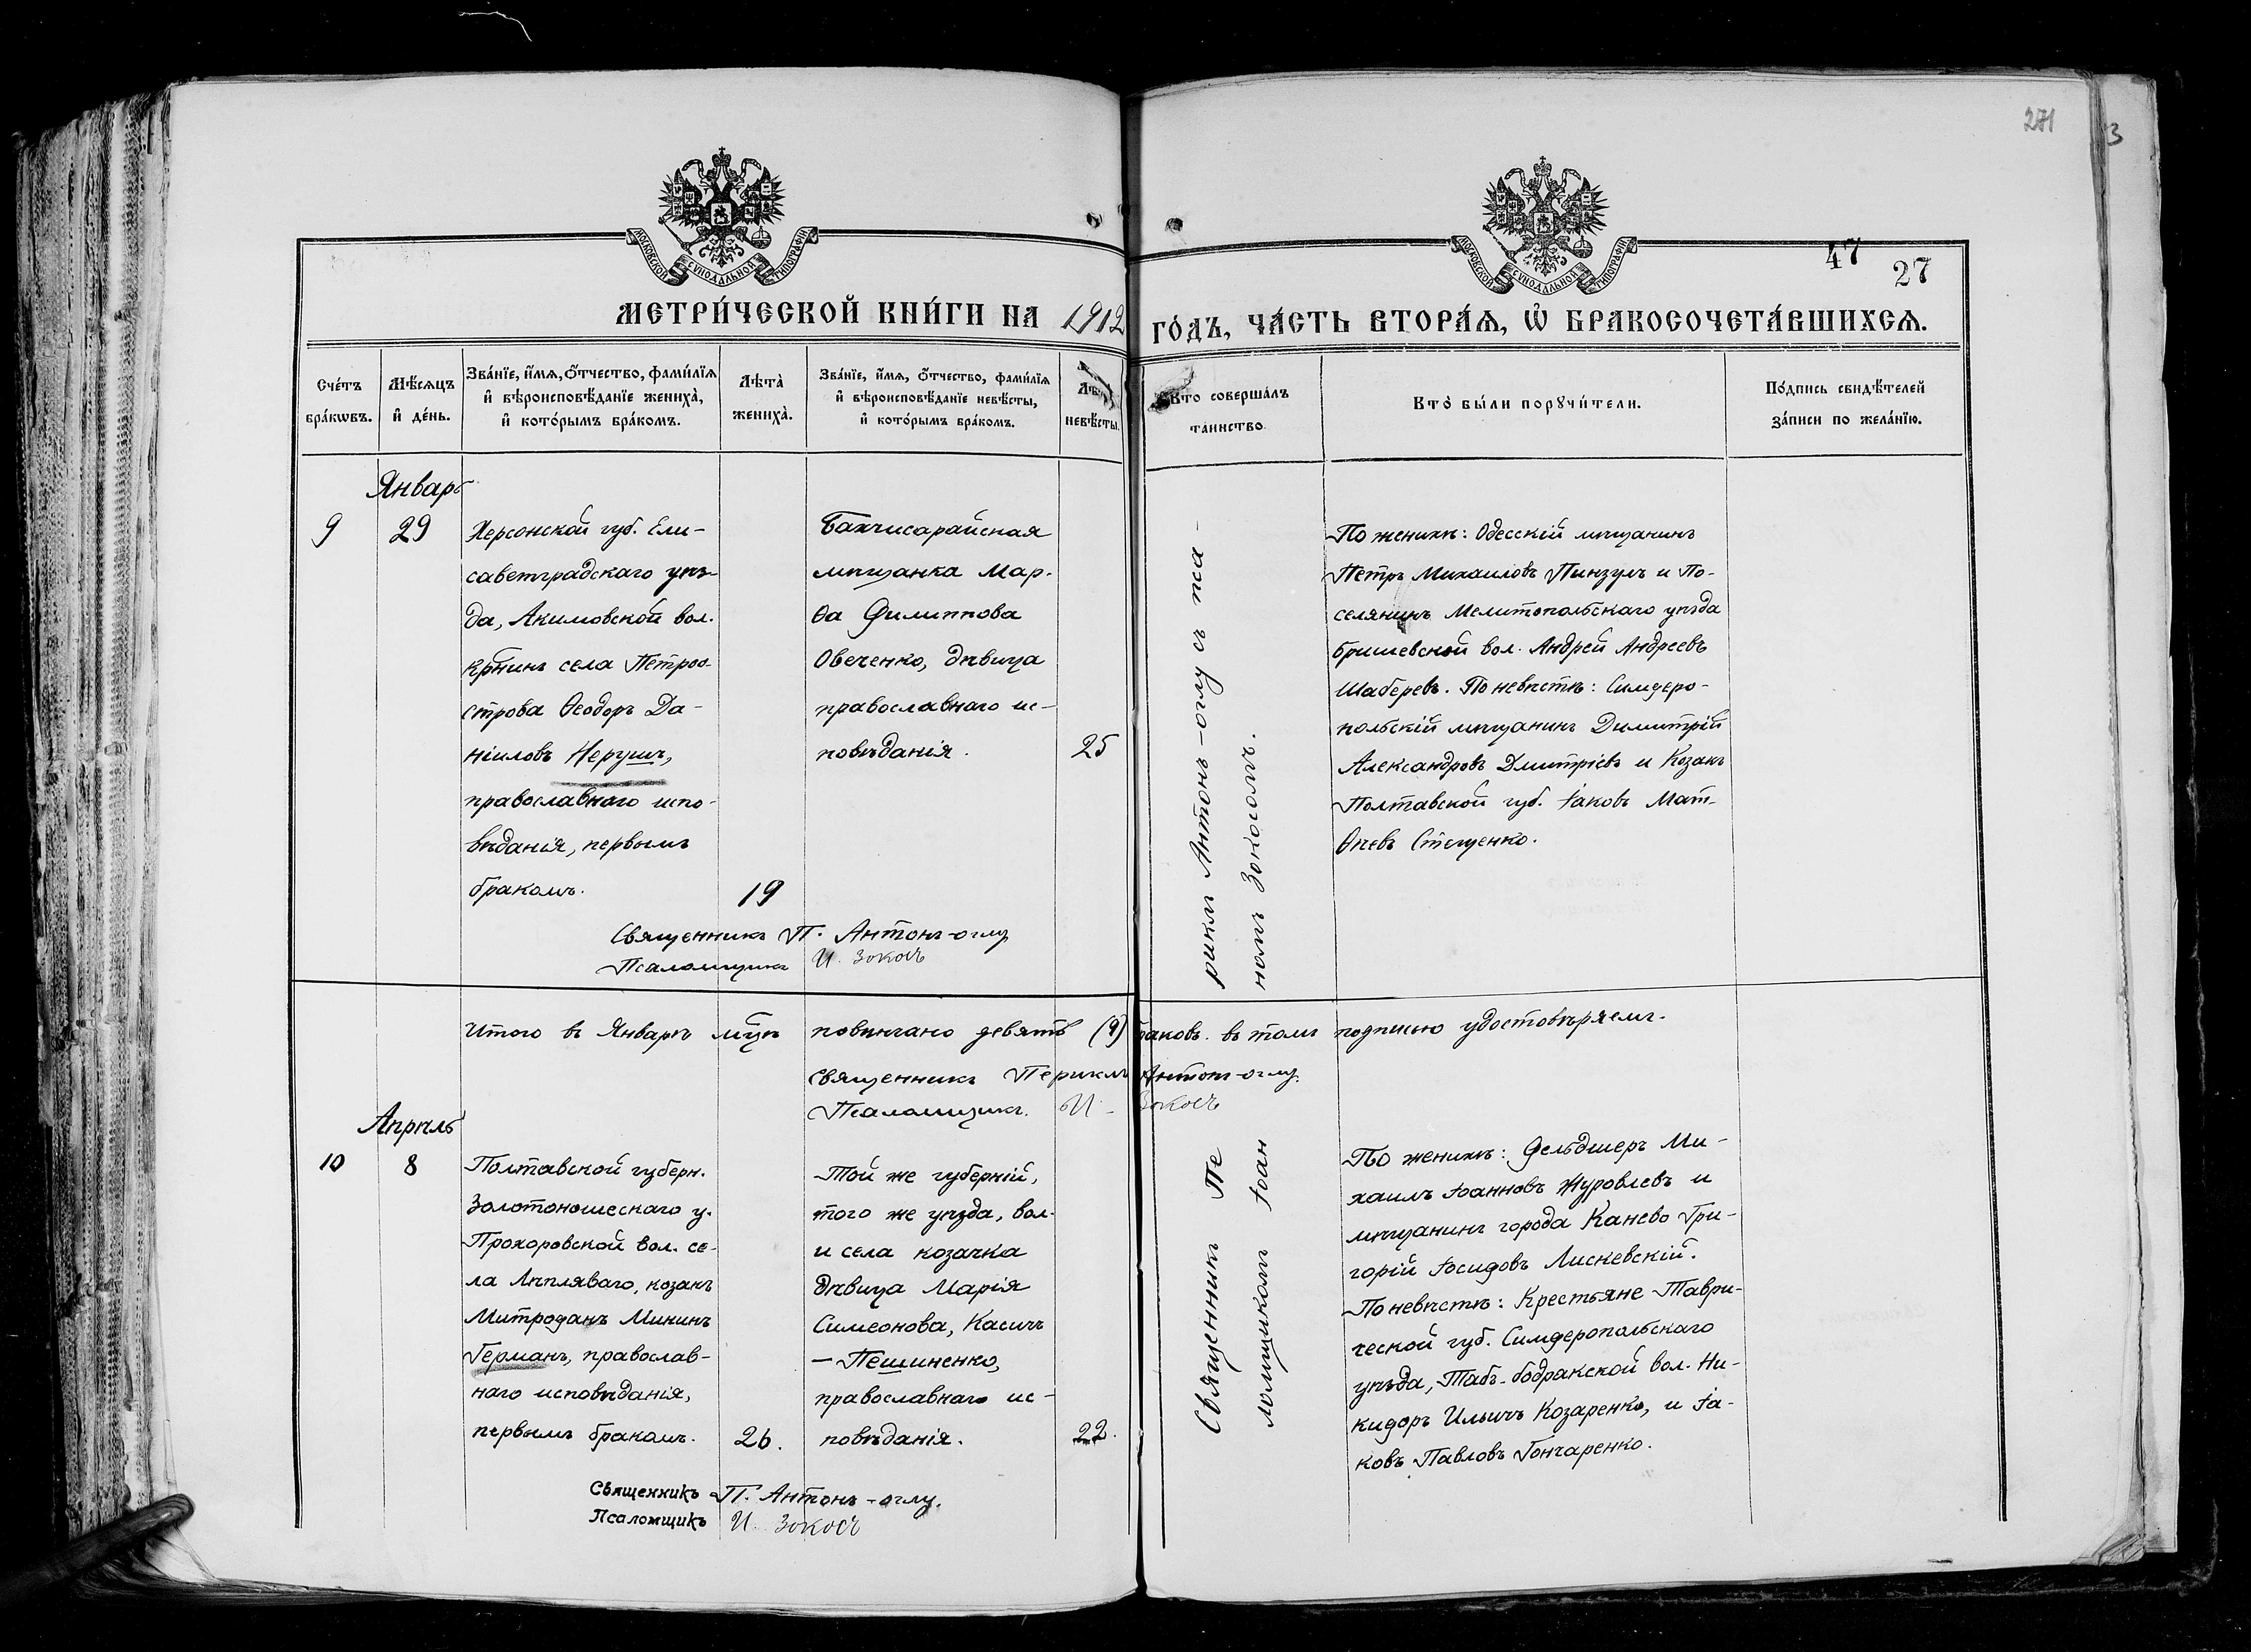 271
3
МОСКОВСКОЙ СѴНОДАЛЬНОЙ ТИПОГРАФІИ
МОСКОВСКОЙ СѴНОДАЛЬНОЙ ТИПОГРАФІИ
47
27
МЕТРИ́ЧЕСКОЙ КНИ́ГИ НА 1912 ГО́ДЪ, ЧА́СТЬ ВТОРА́Я, Ѡ҆ БРАКОСОЧЕТА́ВШИХСЯ.
Сче́тъ
бра́кѡвъ.
Мѣ́сяцъ
и҆ де́нь.
Зва́нїе, и҆́мя, ѻ҆́тчество, фами́лїя
и҆ вѣроисповѣ́данїе жениха̀,
и҆ кото́рымъ бра́комъ.
Лѣ́та
жениха̀.
Зва́нїе, и҆́мя, ѻ҆́тчество, фами́лїя
и҆ вѣроисповѣ́данїе невѣ́сты,
и҆ кото́рымъ бра́комъ.
невѣ́сты.
Кто̀ соверша́лъ
та́инство.
Кто̀ бы́ли порꙋчи́тели.
По́дпись свидѣ́телей
за́писи по жела́нїю.
Январь
9
29
Херсонской губ. Ели-
саветградскаго уѣз-
да, Акимовской вол.
крнинъ села Петроо-
строва Ѳеодоръ Да-
ніиловъ Нерушъ,
православнаго испо-
вѣданія, первымъ
бракомъ.
19
Бахчисарайская
мѣщанка Мар-
ѳа Филиппова
Овеченко, дѣвица
православнаго ис-
повѣданія.
25
риклъ Антонъ-оглу съ пса-
номъ Зокосомъ.
По женихѣ: Одесскій мѣщанинъ
Петръ Михаиловъ Пинзулъ и По-
селянинъ Мелитопольскаго уѣзда
вол. Андрей Андреевъ
Шаберевъ. По невѣстѣ: Симферо-
польскій мѣщанинъ Димитрій
Александровъ Дмитріевъ и Козакъ
Полтавской губ. Іаковъ Мат-
ѳеевъ Стеценко.
Священникъ П. Антонъ-оглу
Псаломщикъ И. Зокосъ
Итого въ Январѣ мцѣ повѣнчано девять (9) браковъ. въ томъ подписью удостовѣряемъ.
Священникъ Периклъ Антонъ-оглу.
Псаломщикъ И. Зокосъ
Апрѣль
10
8
Полтавской губерн.
Золотоношескаго у.
Прохоровской вол. се-
ла Лѣпляваго, козакъ
Митрофанъ Мининъ
Германъ, православ-
наго исповѣданія,
первымъ бракомъ.
26.
Той же губерніи,
того же уѣзда, вол.
и села козачка
дѣвица Марія
Симеонова, Касичъ
- Пешиненко,
православнаго ис-
повѣданія.
22.
Священникъ Пе
ломщикомъ Іоан
По женихѣ: Фельдшеръ Ми-
хаилъ Іоанновъ Журовлевъ и
мѣщанинъ города Канево Гри-
горій Іосифовъ Лискевскій.
По невѣстѣ: Крестьяне Таври-
ческой губ. Симферопольскаго
уѣзда, Табъ-бодракской вол. Ни-
кифоръ Ильичъ Козаренко, и Іа-
ковъ Павловъ Гончаренко.
Священникъ П. Антонъ-оглу.
Псаломщикъ И. Зокосъ